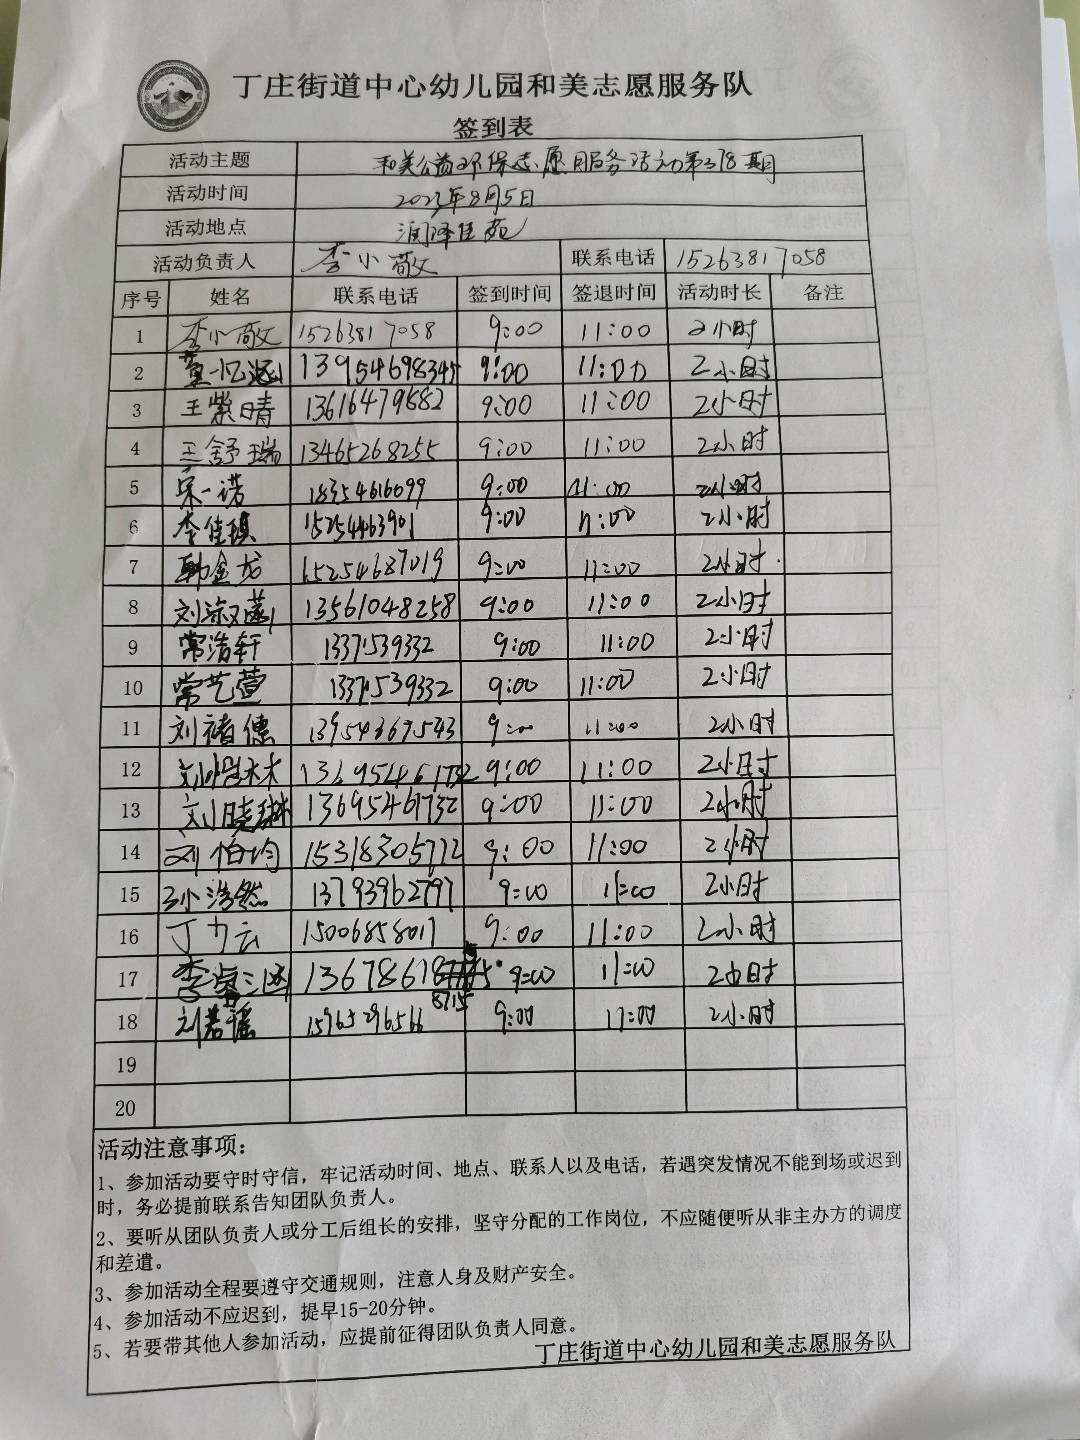 丁庄街道中心幼儿园和美志愿服务队
签到表
活动主题 和美公益环保志愿服务活动第378期
活动时间 2023年8月5日
活动地点 润泽佳苑
活动负责人 李小敬 联系电话 15263817058
序号 姓名 联系电话 签到时间 签退时间 活动时长 备注
1 李小敬 15263817058 9:00 11:00 2小时
2 董一忆涵 13954698345 9:00 11:00 2小时
3 王紫晴 13616479682 9:00 11:00 2小时
4 王舒瑞 13465268255 9:00 11:00 2小时
5 宋一诺 18354616099 9:00 11:00 2小时
6 李佳琪 15254463901 9:00 11:00 2小时
7 韩金龙 15254687019 9:00 11:00 2小时
8 刘 13561048258 9:00 11:00 2小时
9 常浩轩 13371539332 9:00 11:00 2小时
10 常艺萱 13371539332 9:00 11:00 2小时
11 刘禇德 13954369543 9:00 11:00 2小时
12 刘 9:00 11:00 2小时
13 刘晓琳 13695461732 9:00 11:00 2小时
14 刘怡均 15318305772 9:00 11:00 2小时
15 孙浩然 13793962797 9:00 11:00 2小时
16 丁 云 15006858017 9:00 11:00 2小时
17 李 1367861 8715 9:00 11:00 2小时
18 刘若瑶 15965296566 9:00 11:00 2小时
19
20
活动注意事项：
1、参加活动要守时守信，牢记活动时间、地点、联系人以及电话，若遇突发情况不能到场或迟到
时，务必提前联系告知团队负责人。
2、要听从团队负责人或分工后组长的安排，坚守分配的工作岗位，不应随便听从非主办方的调度
和差遣。
3、参加活动全程要遵守交通规则，注意人身及财产安全。
4、参加活动不应迟到，提早15-20分钟。
5、若要带其他人参加活动，应提前征得团队负责人同意。
丁庄街道中心幼儿园和美志愿服务队